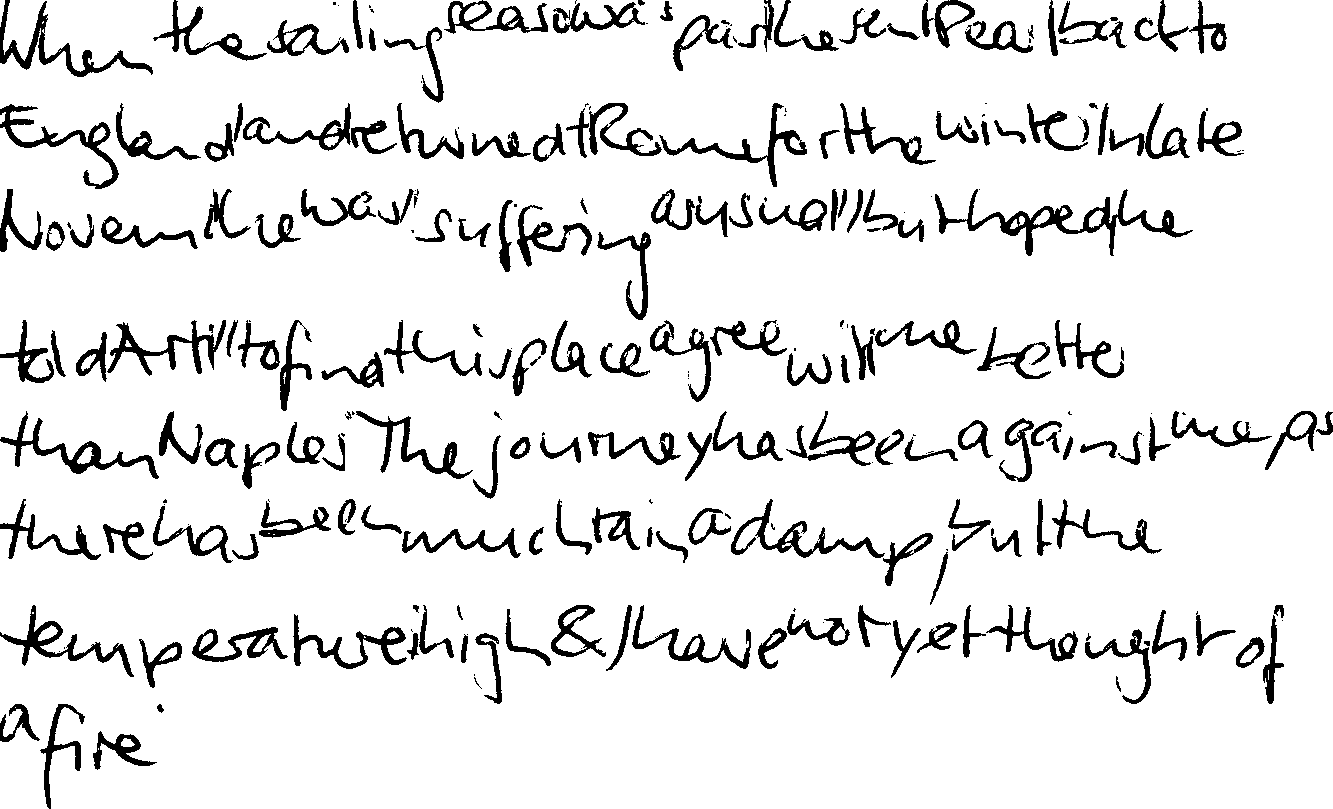 When the sailing season was past he sent Pearl back to
England and returned to Rome for the winter. In late
November he was suffering as usual but hoped, he
told Artill to find this place agree will me better
than Naples. The journey has been against me, as
there has been much rain a damp, but the
temperature is high & I have not yet thought of
a fire.